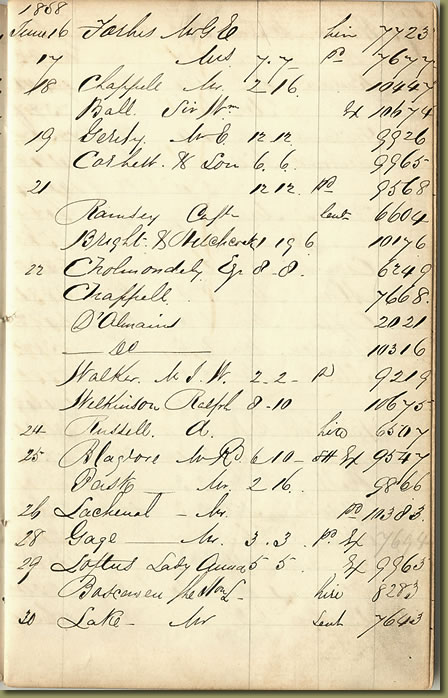 1858
June 16 Forbes Mr G E hire 7723
17 Mrs 7.7. pd 7677
18 Chappell Mr. 2 16. 10447
Ball. Sir Wm Ex 10674
19 Mr E. 12 12. 9926
Corbett. & Son 6. 6. 9965
21 12 12. pd 9568
Ramsey Captn lent 6604
Bright. & Hitchcock 1 19 6 10176
22 Cholmondely Esq 8-8. 6249
Chappell. 7668.
D'Almaine 2021
— Do — 10316
Walker. M J. W. 2.2 - pd 9219
Wilkinson Ralph 8-10 10675
24 Russell. A. hire 6507
25 Blagrove Mr Rd. 6 10 - Ex 9547
Pask — Mr. 2 16. 9866
26 Lachenal - Mr. pd 10383.
28 Gage — Mr. 3.3 pd Ex
29 Loftus Lady Anna 5 5. Ex 9963
Boscawen the Hon L- hire 8283
30 Lake - Mr lent 7643